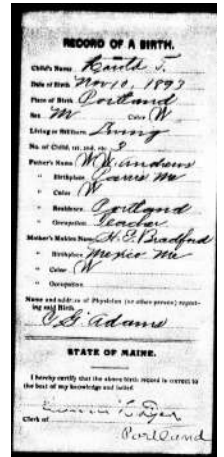 RECORD OF A BIRTH.
Child's Name Harold T.
Date of Birth Nov. 10. 1893
Place of Birth Portland
Sex M Color W
Living or Stillborn Living
No. of Child, 1st, 2nd, etc. 3
Father's Name W. W. Andrews
" Birthplace Paris Me
" Color W
" Residence Portland
" Occupation Teacher
Mother's Maiden Name H. F. Bradford
" Birthplace Mexico Me
" Color W
" Occupation
Name and address of Physician (or other person) report-
ing said Birth
C G Adams
STATE OF MAINE.
I hereby certify that the above birth record is correct to
the best of my knowledge and belief.
Clerk of
Portland